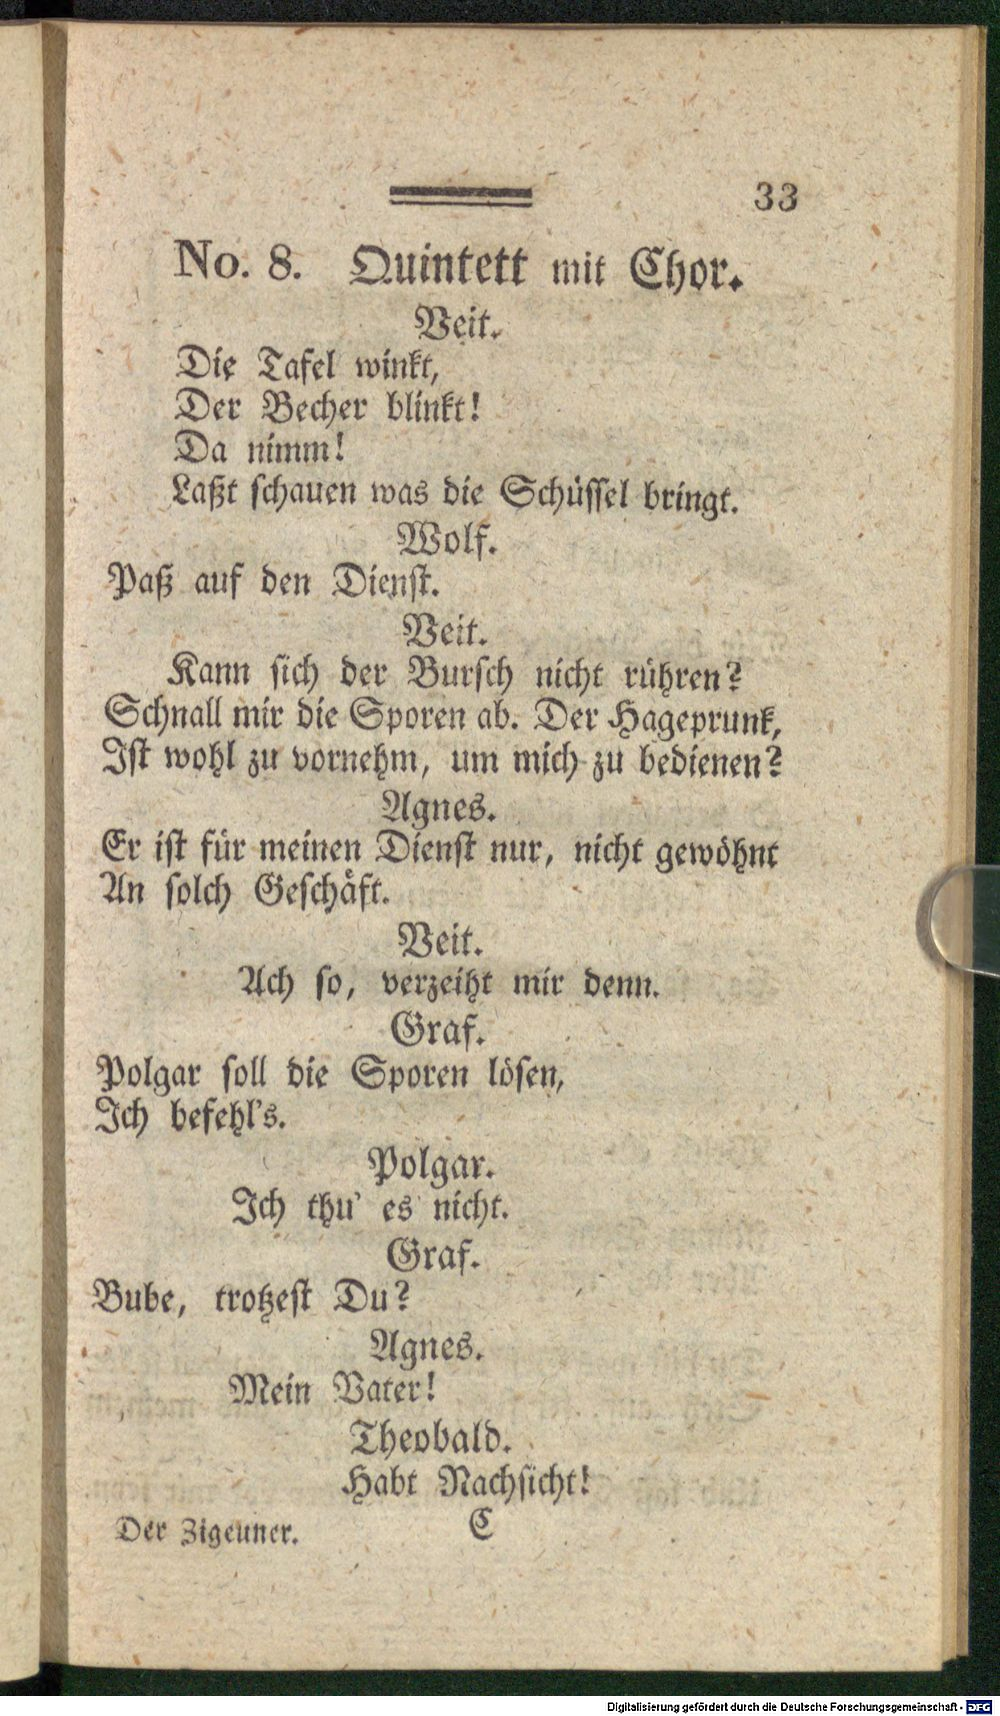 33
No. 8. Quintett mit Chor.
Veit.
Die Tafel winkt,
Der Becher blinkt!
Da nimm!
Laßt schauen was die Schüssel bringt.
Wolf.
Paß auf den Dienst.
Veit.
Kann sich der Bursch nicht rühren?
Schnall mir die Sporen ab. Der Hageprunk,
Ist wohl zu vornehm, um mich zu bedienen?
Agnes.
Er ist für meinen Dienst nur, nicht gewöhnt
An solch Geschäft.
Veit.
Ach so, verzeiht mir denn.
Graf.
Polgar soll die Sporen lösen,
Ich befehl's.
Polgar.
Ich thu' es nicht.
Graf.
Bube, trotzest Du?
Agnes.
Mein Vater!
Theobald.
Habt Nachsicht!
Der Zigeuner. C
Digitalisierung gefördert durch die Deutsche Forschungsgemeinschaft - DFG